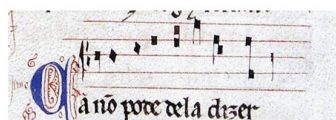 Ca nõ pode dela dizer